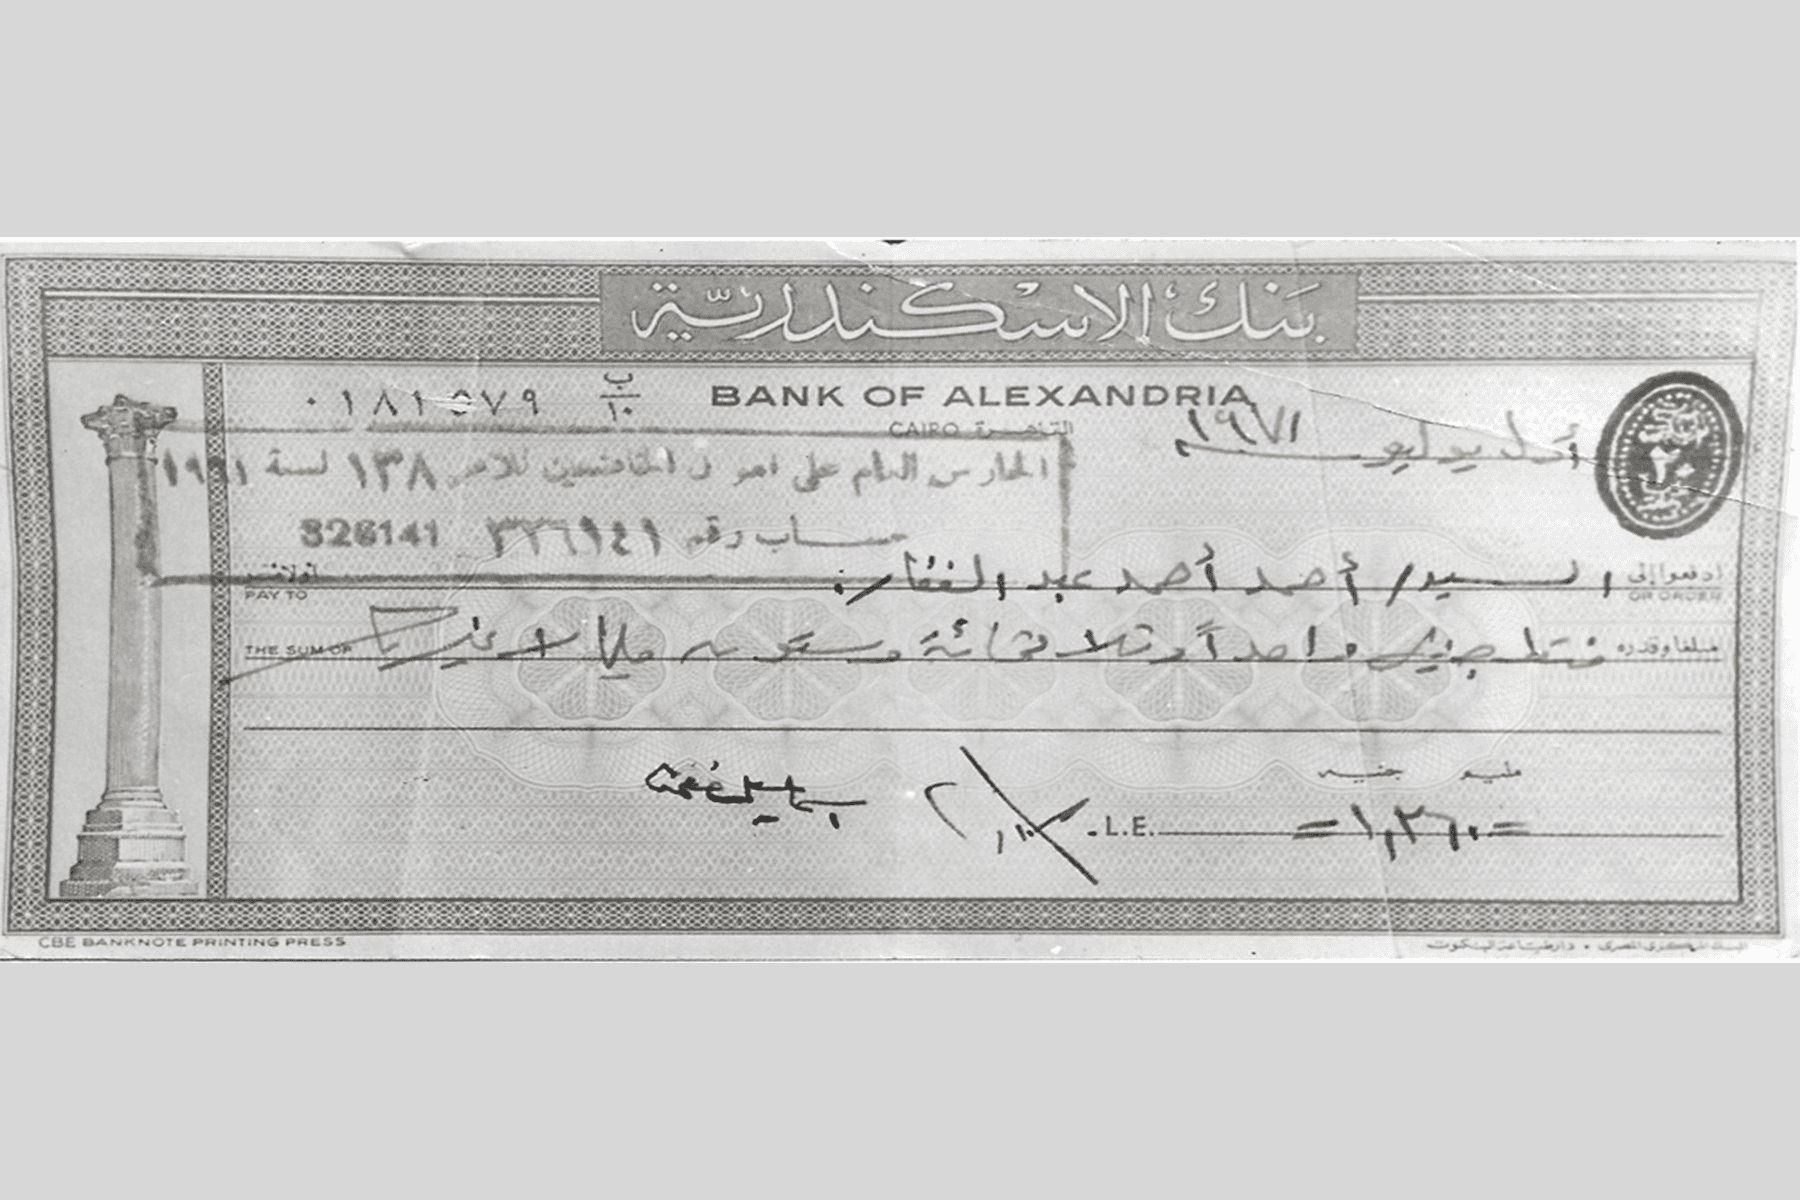 بنك الإسكندرية
BANK OF ALEXANDRIA
٠١٨١٥٧٩ ب/١٠
CAIRO القاهرة
أول يوليو ١٩٧١
٢٠
الحارس العام على اموال الخاضعين للامر ١٣٨ لسنة ١٩٦١
حساب رقم ٣٢٦١٤١ 326141
ادفعوا إلى السيد/ أحمد أحمد عبد الغفار
PAY TO OR ORDER
مبلغا وقدره فقط جنيه واحداً وثلاثمائة وستون مليما لا غير
THE SUM OF
مليم جنيه
L.E. =١,٣٦٠=
CBE BANKNOTE PRINTING PRESS
البنك المركزى المصرى • دار طباعة البنكنوت